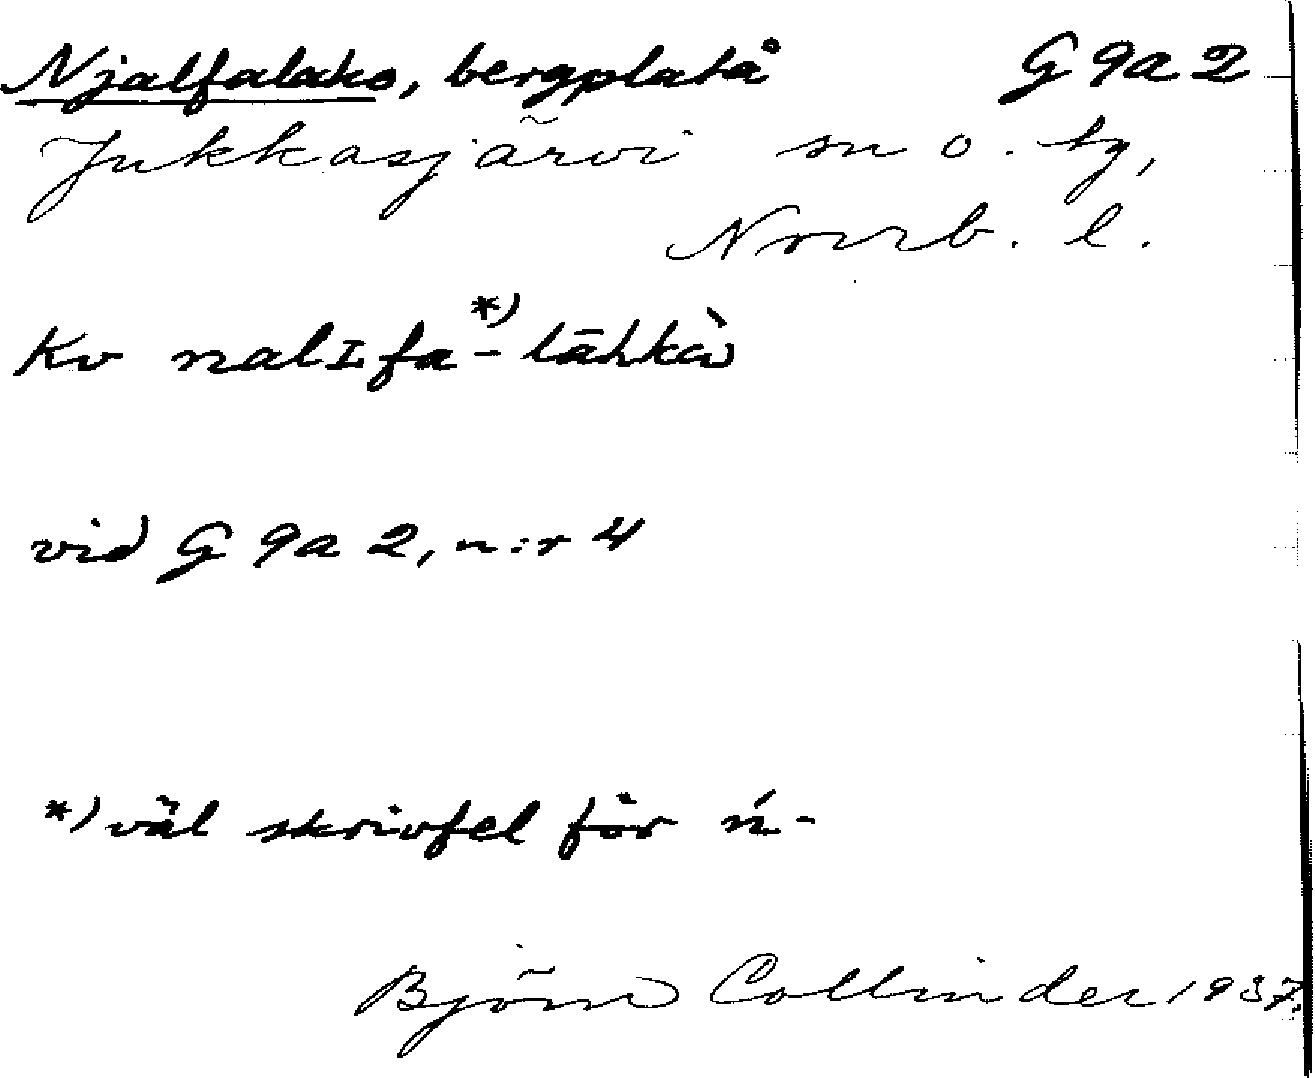 Njalfalako, bergplatå G 9a 2
Jukkasjärvi sn o. tg,
Norrb. l.
Kv nalɪfa*)-lāhkà
vid G 9a 2, n:r 4
*) väl skrivfel för ń-
Björn Collinder 1937.